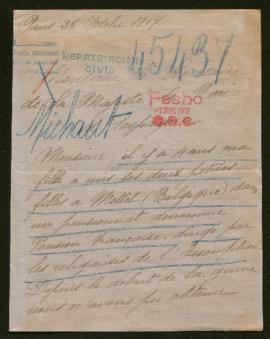 Paris 25 Octobre 1917
REPATRIACION
CIVIL
45437
de Sa Majesté le Roi
Fecho
S.a.e.
Michaut
Monsieur, il y a 4 ans ma
fille a mis ses deux petites
filles à Mettet (Belgique) dans
un pensionnat dénommé
Pension Française, dirigé par
les religieuses de l'Assomption
Depuis le début de la guerre
nous n'avons pu obtenir